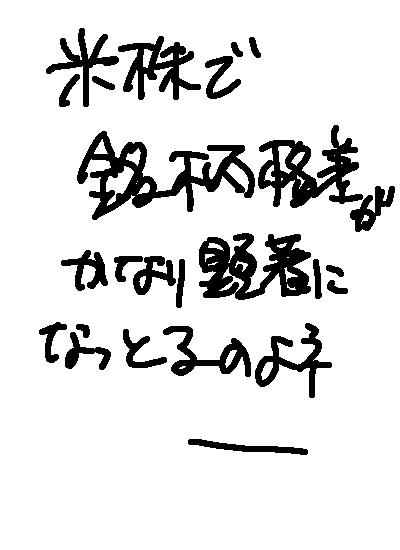 米株で
銘柄格差が
かなり顕著に
なっとるのよネ